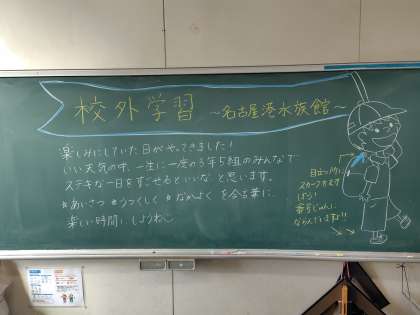 校外学習 ～名古屋港水族館～
楽しみにしていた日がやってきました！
いい天気の中、一生に一度の5年5組のみんなで
ステキな一日をすごせるといいなと思います。
#あいさつ #うつくしく #なかよく を合言葉に、
楽しい時間にしようねっ
目立つ所に
スカーフをまき
ましょう！
番号じゅんに
ならんでいますか!!